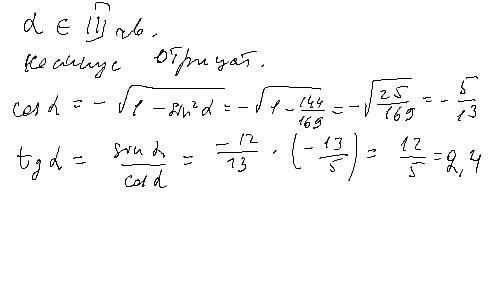 α ∈ III чв.
косинус отрицат.
cos α = - √(1 - sin²α) = - √(1 - 144/169) = - √(25/169) = - 5/13
tg α = sin α / cos α = -12/13 · (-13/5) = 12/5 = 2,4